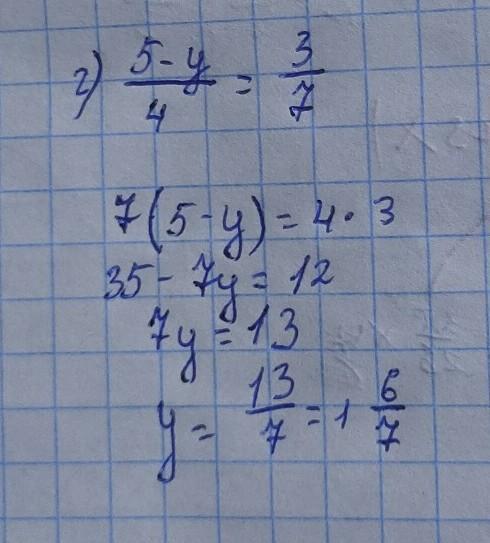 г) (5-y)/4 = 3/7
7(5-y) = 4·3
35-7y = 12
7y = 13
y = 13/7 = 1 6/7